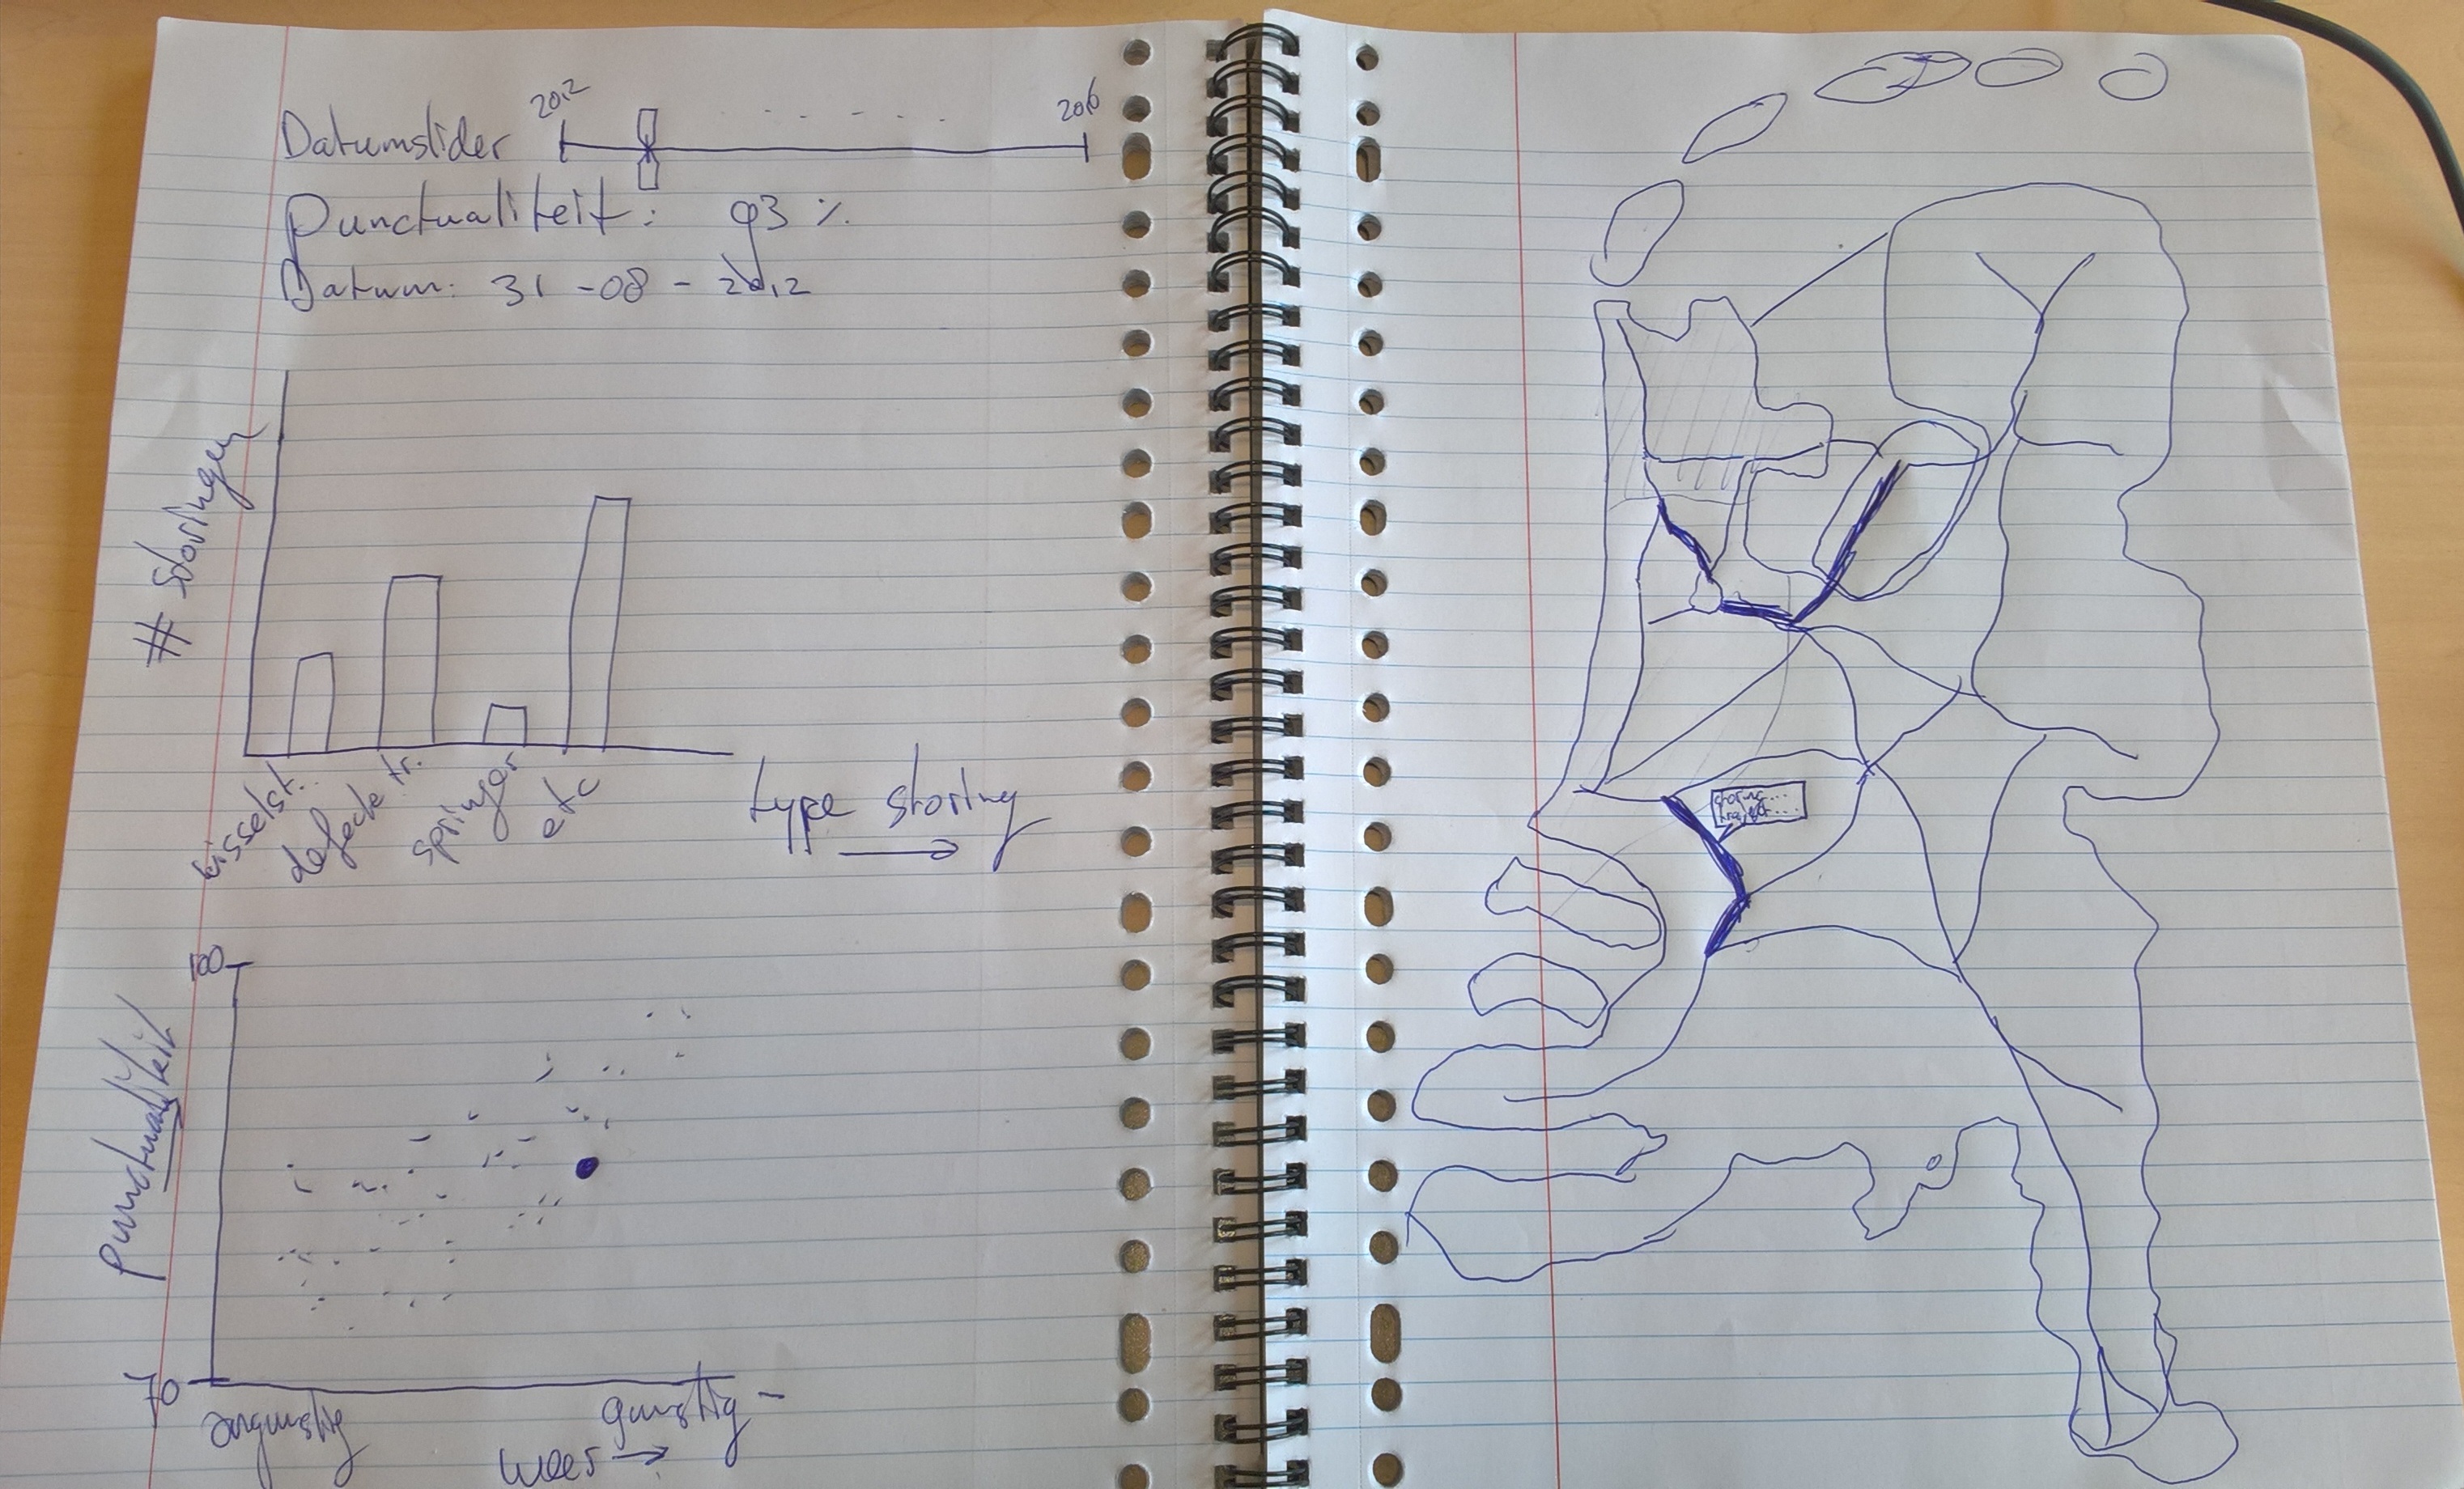 Datumslider 2012 2016
Punctualiteit: 93 %
Datum: 31-08-2012
# storingen
wisselst..
defecte tr.
springer
etc
type storing →
100
Punctualiteit
70
ongunstig
gunstig
weer →
storing...